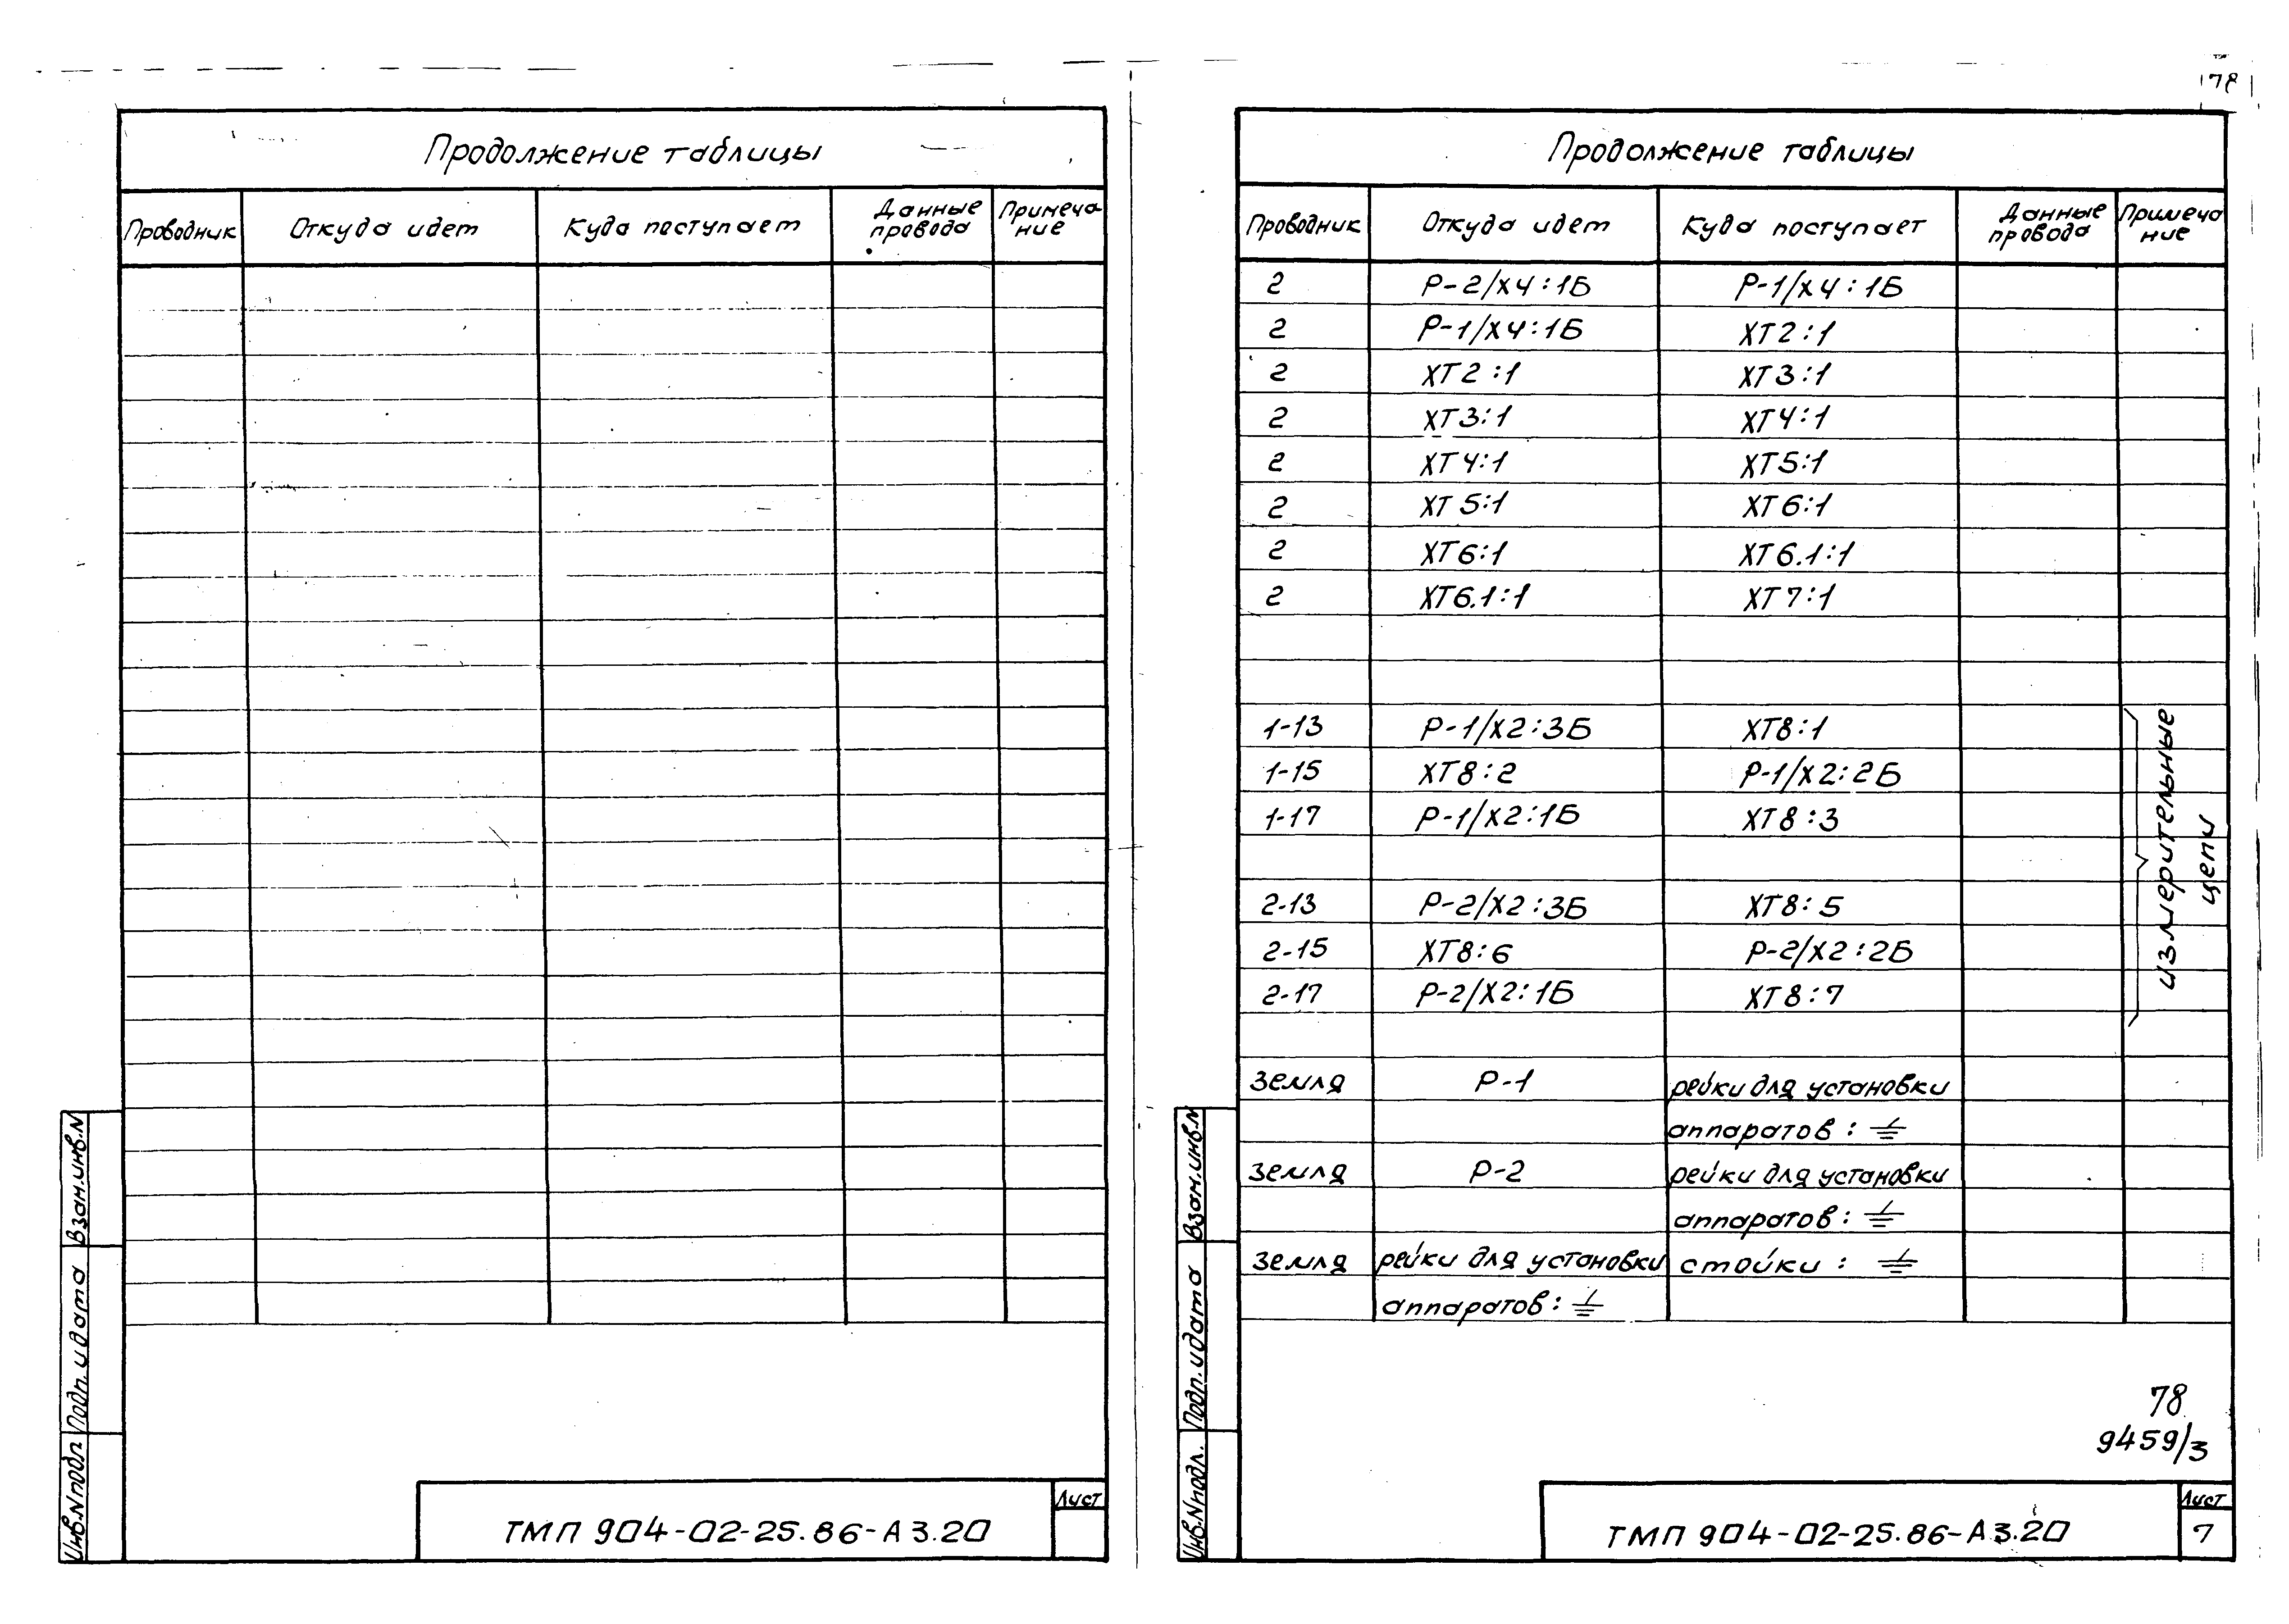 78
Продолжение таблицы
Проводник Откуда идет Куда поступает Данные провода Примеча ние
Взам.инв.N
Подп. и дата
Инв.N подл
ТМП 904-02-25.86-А3.20
Лист
Продолжение таблицы
Проводник Откуда идет Куда поступает Данные провода Примеча ние
2 Р-2/Х4:1Б Р-1/Х4:1Б
2 Р-1/Х4:1Б ХТ2:1
2 ХТ2:1 ХТ3:1
2 ХТ3:1 ХТ4:1
2 ХТ4:1 ХТ5:1
2 ХТ5:1 ХТ6:1
2 ХТ6:1 ХТ6.1:1
2 ХТ6.1:1 ХТ7:1
1-13 Р-1/Х2:3Б ХТ8:1
1-15 ХТ8:2 Р-1/Х2:2Б
1-17 Р-1/Х2:1Б ХТ8:3
2-13 Р-2/Х2:3Б ХТ8:5
2-15 ХТ8:6 Р-2/Х2:2Б
2-17 Р-2/Х2:1Б ХТ8:7
измерительные
цепи
Земля Р-1 рейки для установки
аппаратов: ⏚
Земля Р-2 рейки для установки
аппаратов: ⏚
Земля рейки для установки стойки: ⏚
аппаратов: ⏚
78
9459/3
Взам.инв.N
Подп. и дата
Инв.N подл.
ТМП 904-02-25.86-А3.20
Лист
7